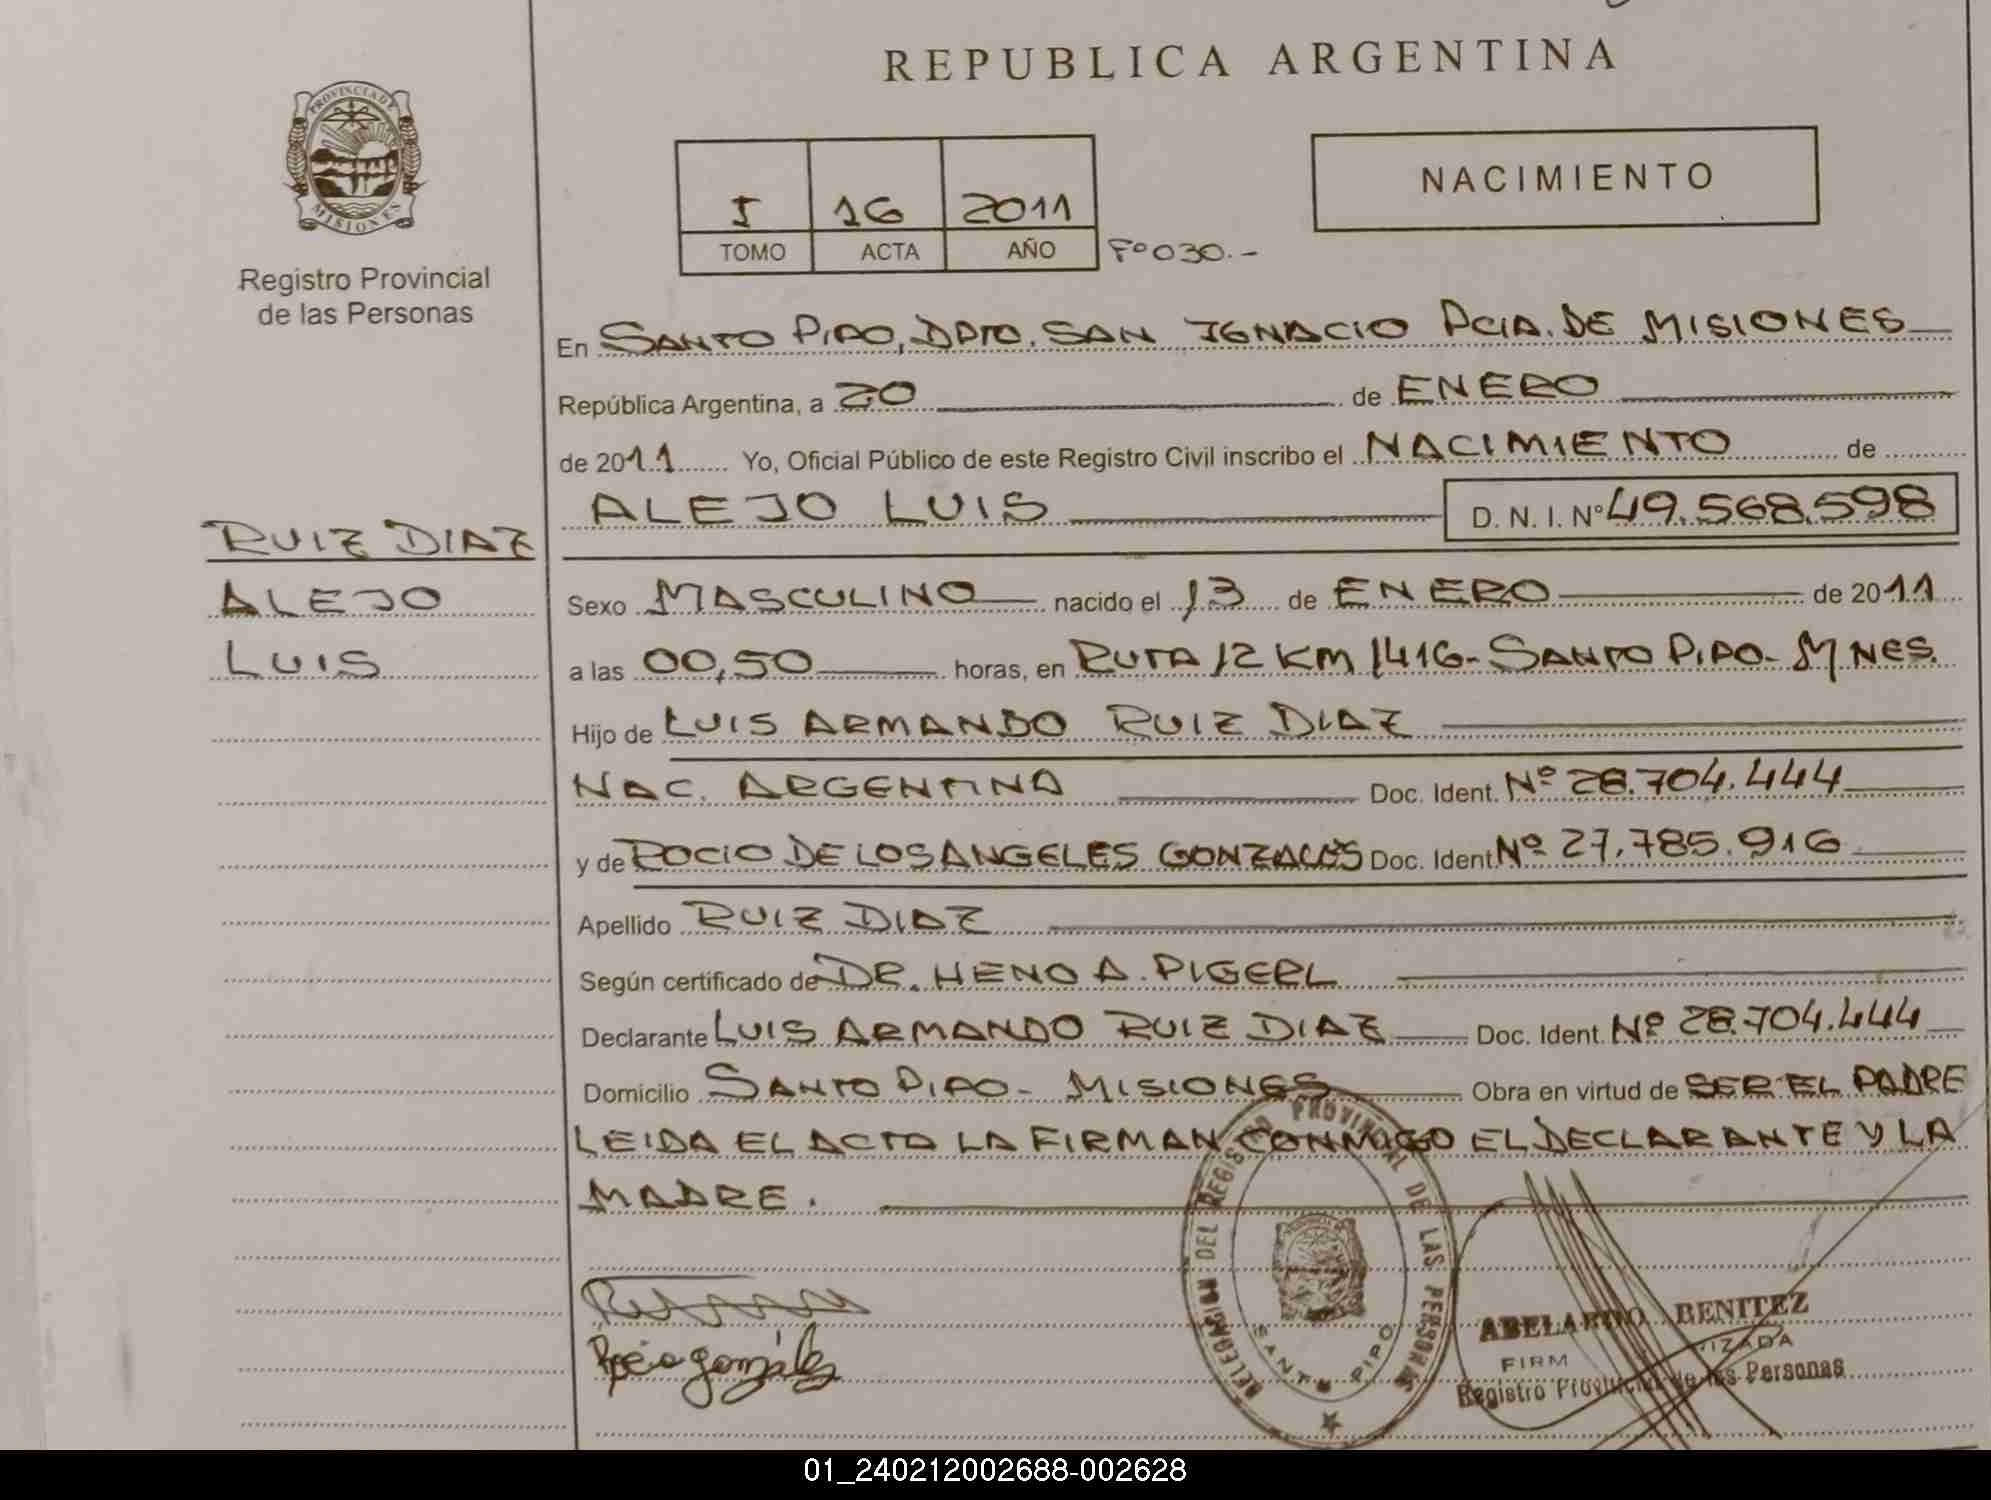 REPUBLICA ARGENTINA
PROVINCIA DE MISIONES
Registro Provincial
de las Personas
I 16 2011
TOMO ACTA AÑO Fº 030.-
NACIMIENTO
En SANTO PIPO, DPTO. SAN IGNACIO PCIA. DE MISIONES
República Argentina, a 20 de ENERO
de 2011 Yo, Oficial Público de este Registro Civil inscribo el NACIMIENTO de
ALEJO LUIS D. N. I. Nº 49.568.598
RUIZ DIAZ
ALEJO
LUIS
Sexo MASCULINO nacido el 13 de ENERO de 2011
a las 00,50 horas, en RUTA 12 KM 1416- SANTO PIPO- MNES.
Hijo de LUIS ARMANDO RUIZ DIAZ
NAC. ARGENTINA Doc. Ident. Nº 28.704.444
y de ROCIO DE LOS ANGELES GONZALES Doc. Ident. Nº 27.785.916
Apellido RUIZ DIAZ
Según certificado de DR. HENO A. PIGERL
Declarante LUIS ARMANDO RUIZ DIAZ Doc. Ident. Nº 28.704.444
Domicilio SANTO PIPO- MISIONES Obra en virtud de SER EL PADRE
LEIDA EL ACTA LA FIRMAN CONMIGO EL DECLARANTE Y LA
MADRE.
Rocio Gonzalez
DELEGACION DEL REGISTRO PROVINCIAL DE LAS PERSONAS
SANTO PIPO
ABELARDO BENITEZ
FIRM IZADA
Registro Provincial de las Personas
01_240212002688-002628